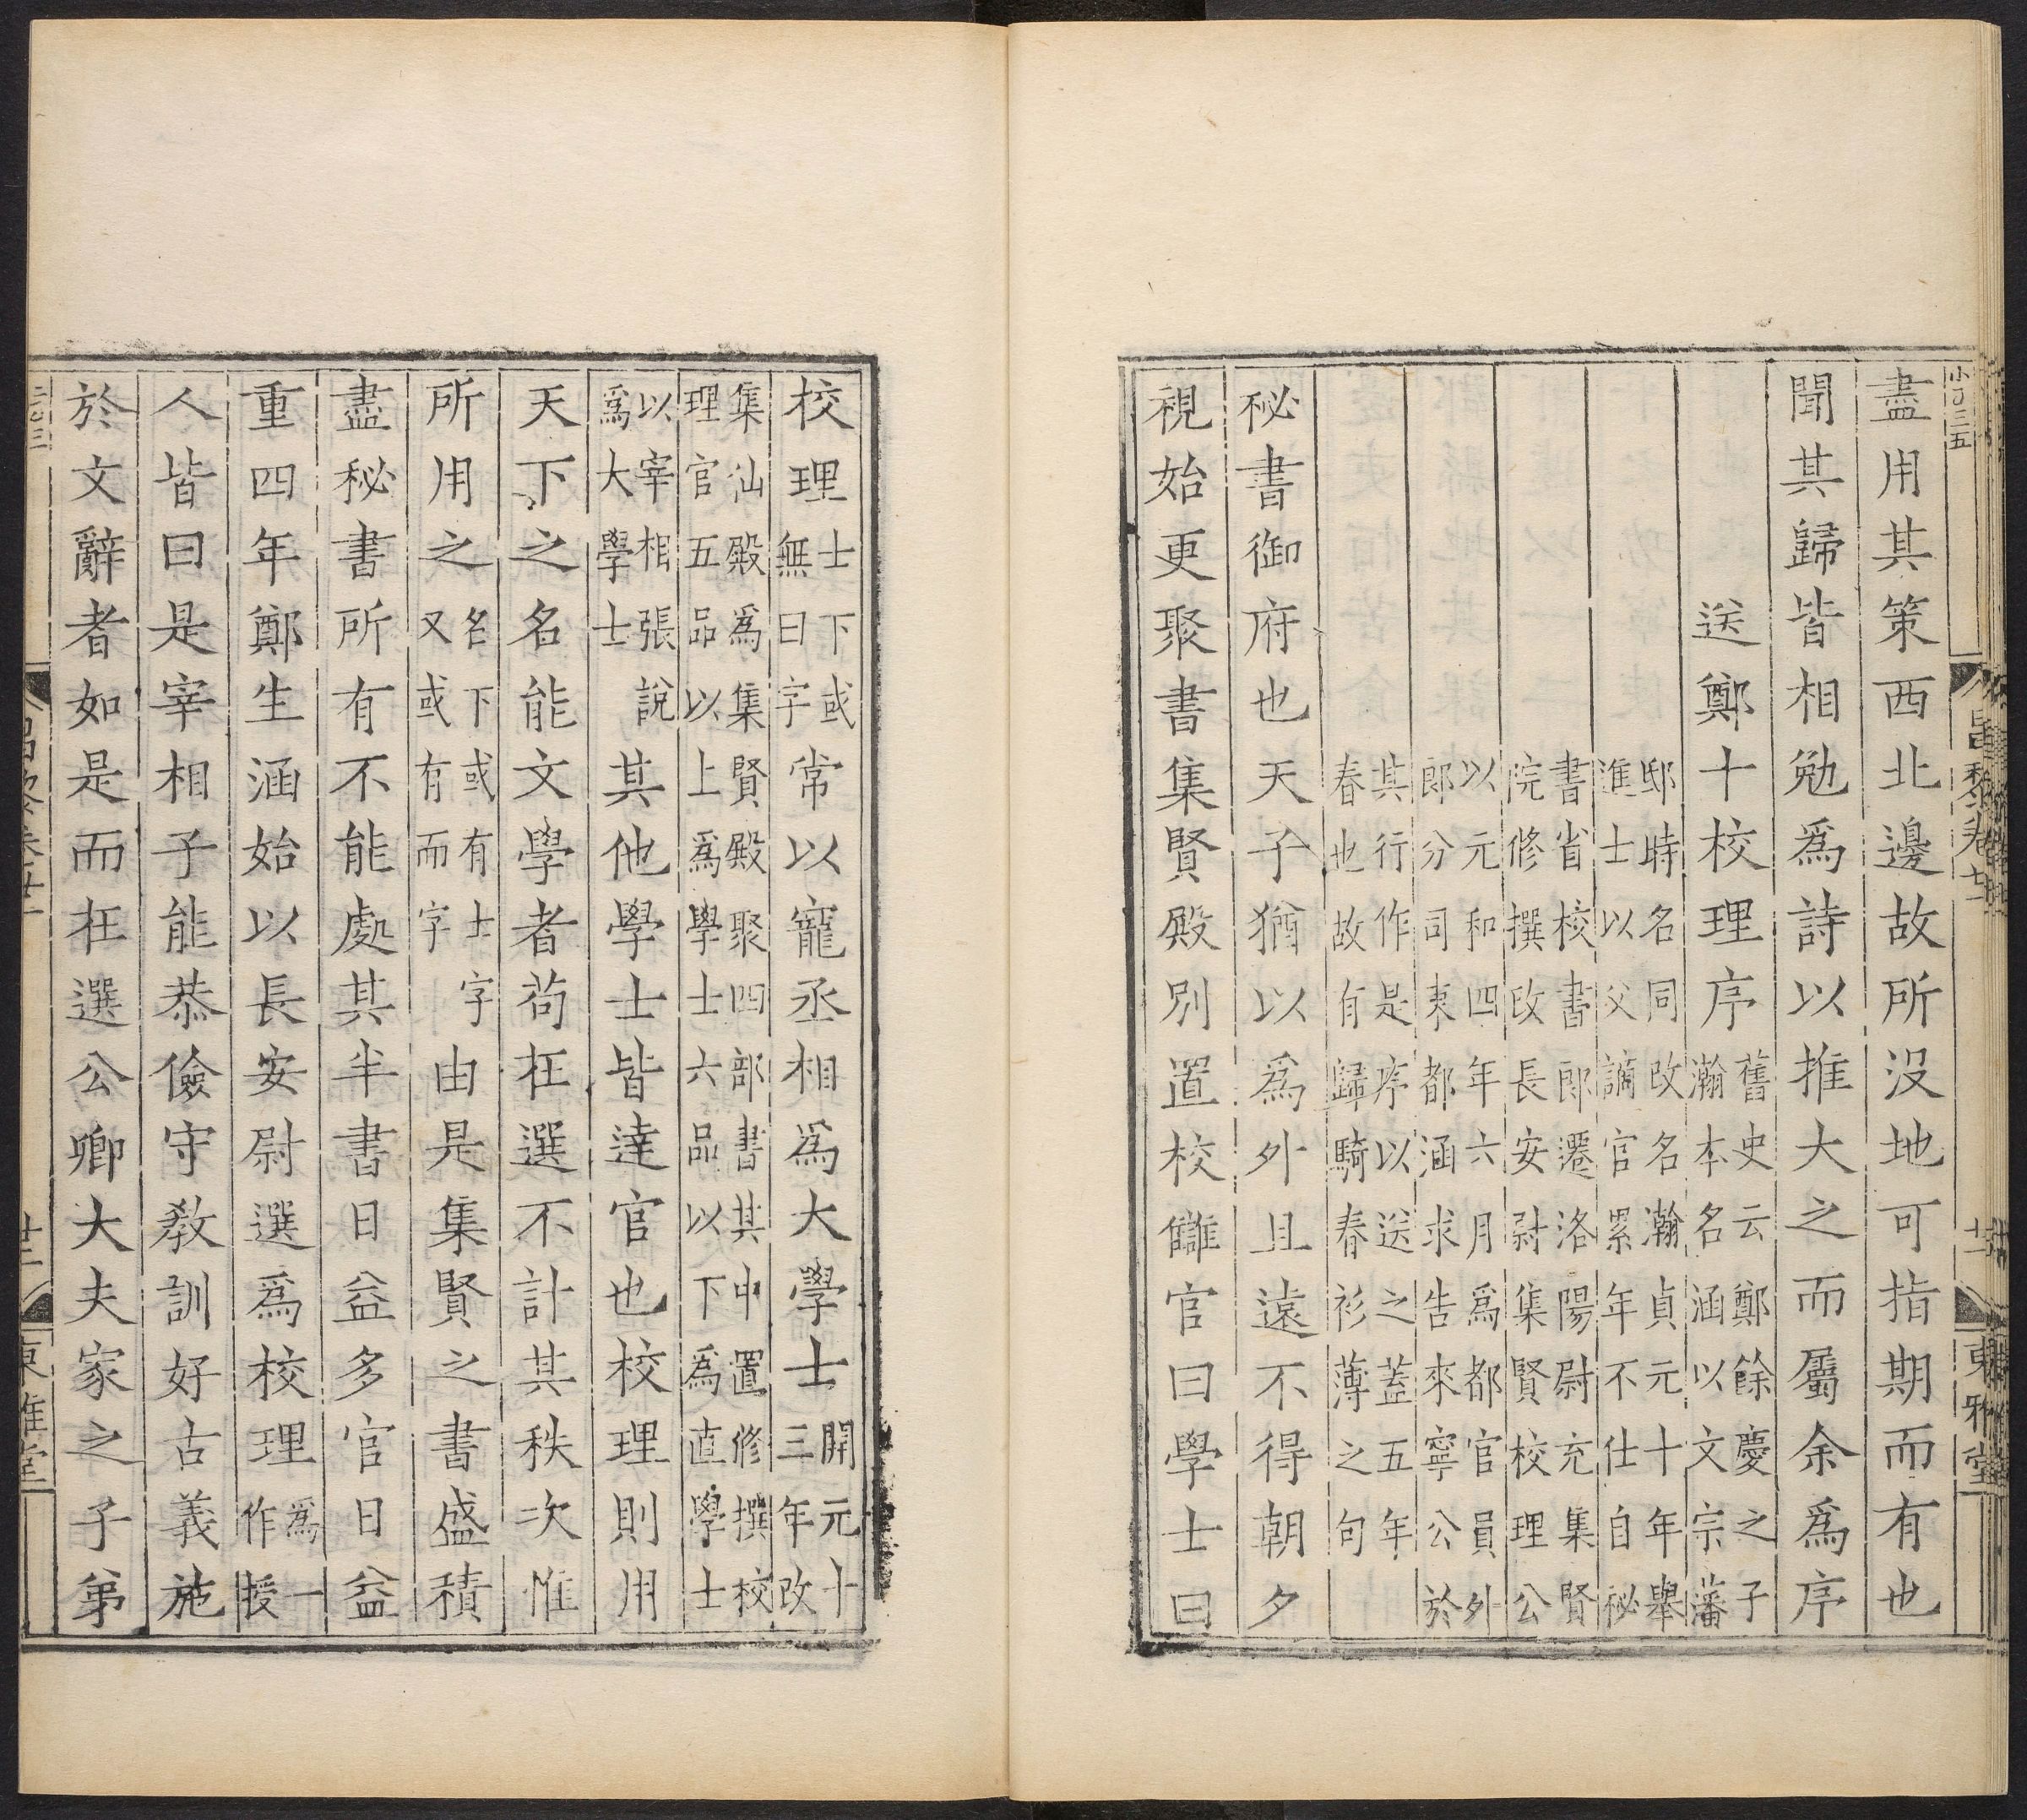 盡用其策西北邊故所沒地可指期而有也
聞其歸皆相勉爲詩以推大之而屬余爲序
送鄭十校理序
舊史云鄭餘慶之子
瀚本名涵以文宗藩
邸時名同改名瀚貞元十年舉
進士以父謫官累年不仕自秘
書省校書郎遷洛陽尉充集賢
院修撰改長安尉集賢校理公
以元和四年六月爲都官員外
郎分司東都涵求告來寧公於
其行作是序以送之蓋五年
春也故有歸騎春衫薄之句
秘書御府也天子猶以爲外且遠不得朝夕
視始更聚書集賢殿別置校讎官曰學士曰
校理
士下或
無曰字
常以寵丞相爲大學士
開元十
三年改
集仙殿爲集賢殿聚四部書其中置修撰校
理官五品以上爲學士六品以下爲直學士
以宰相張說
爲大學士
其他學士皆達官也校理則用
天下之名能文學者苟在選不計其秩次惟
所用之
名下或有士字
又或有而字
由是集賢之書盛積
盡秘書所有不能處其半書日益多官日益
重四年鄭生涵始以長安尉選爲校理
爲一
作授
人皆曰是宰相子能恭儉守教訓好古義施
於文辭者如是而在選公卿大夫家之子弟
昌黎卷廿一
廿二
東雅堂